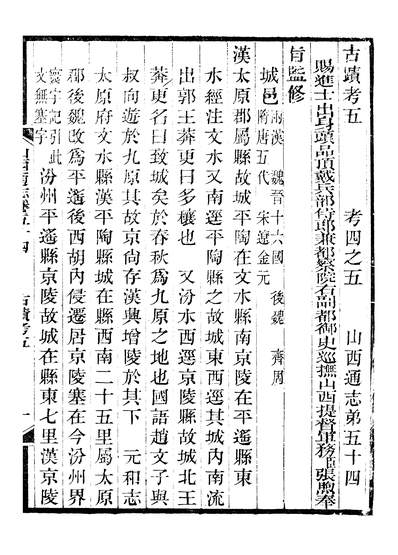 古蹟考五　　考四之五　　山西通志第五十四
賜進士出身頭品頂戴兵部侍郎兼都察院右副都御史巡撫山西提督軍務臣張煦奉
旨監修
城邑 兩漢 魏晉十六國 後魏 齊周
隋唐五代 宋遼金元
漢太原郡屬縣故城有平陶在文水縣南京陵在平遙縣東
水經注文水又南逕平陶縣之故城東西逕其城內南流
出郭王莽更曰多穰也　又汾水西逕京陵縣故城北王
莽更名曰致城矣於春秋為九原之地也國語趙文子與
叔向遊於九原其故京尚存漢興增陵於其下　元和志
太原府文水縣漢平陶縣城在縣西南二十五里屬太原
郡後魏改為平遙後西胡內侵遷居京陵塞在今汾州界
寰宇記引此
文無塞字 汾州平遙縣京陵故城在縣東七里漢京陵
古蹟考五　一